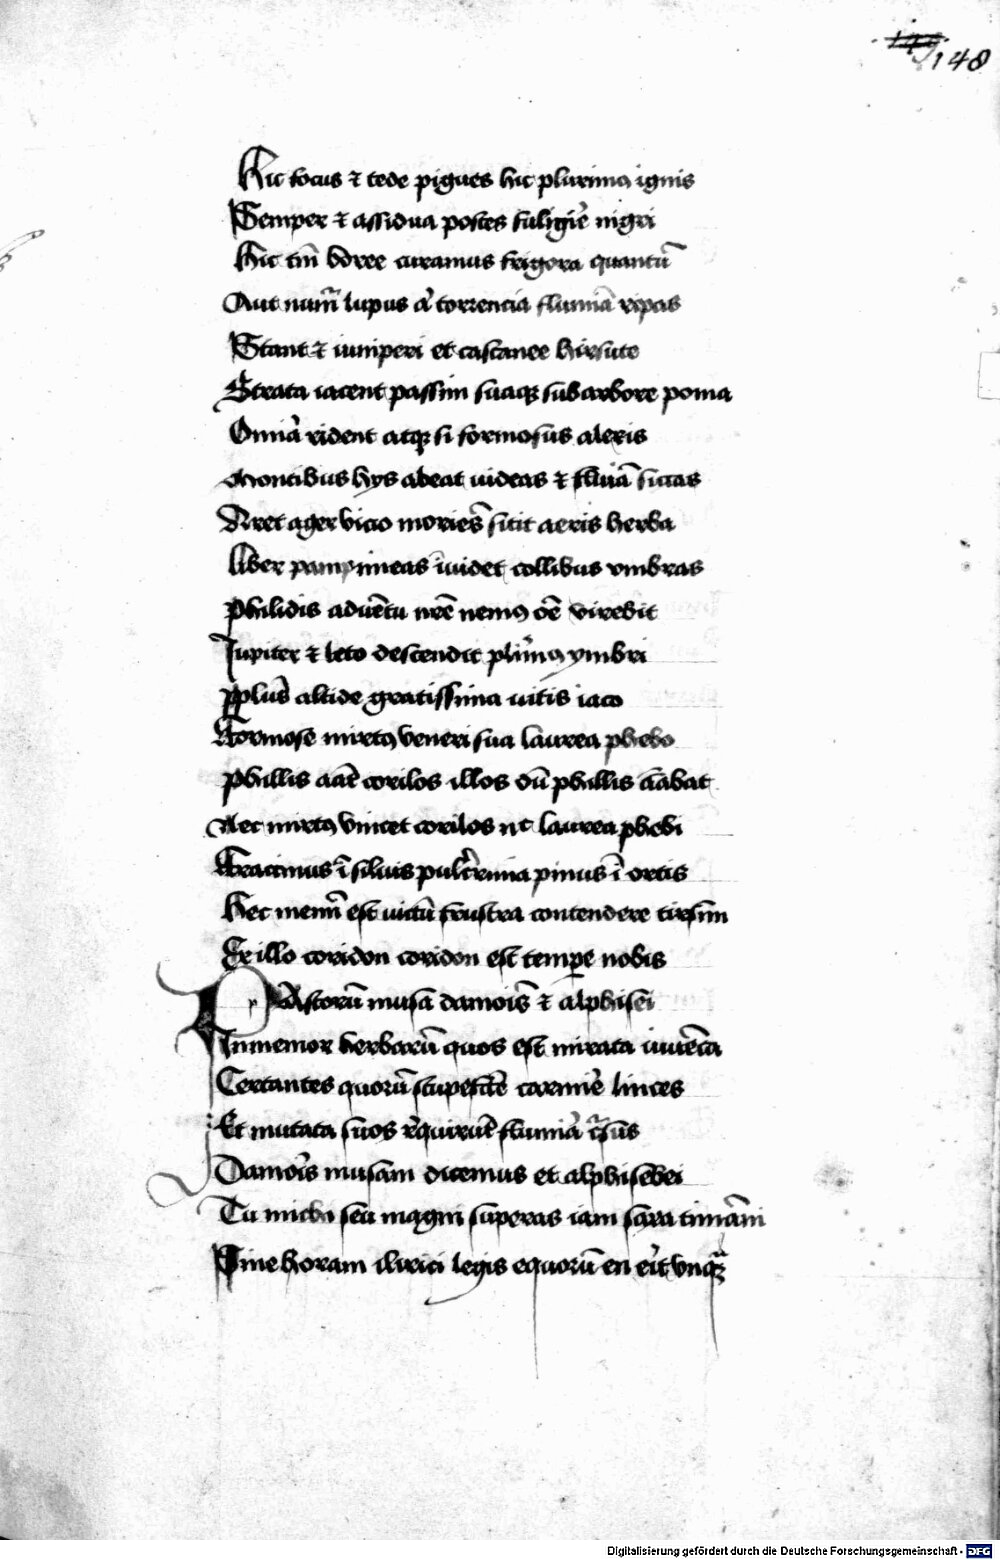 148
Hic focus ⁊ tede pigues hic plurimꝰ ignis
Semper ⁊ assidua postes fuligīe nigri
Hic tm̄ boree curamus frigora quantū
Aut num̄ lupus a͛ torrencia flumīa ripas
Stant ⁊ iuniperi et castanee hirsute
Strata iacent passim suaqꝫ sub arbore poma
Omīa rident atqꝫ si formosus alexis
Montibus hys abeat uideas ⁊ fluīa siccas
Aret ager vicio moriēs sitit aeris herba
Liber pampineas īuidet collibus vmbras
Philidis aduētu nr̄e nemꝰ oē virebit
Jupiter ⁊ leto descendit plīmꝰ ymbri
Pplus̄ alcide gratissima uitis iaco
Formose mirtꝰ veneri sua laurea phebo
Phillis amāt corilos illos dū phillis amābat
Nec mirtꝰ vincet corilos nc laurea phebi
Fraxinus ī siluis pulcerrima pinus ī ortis
Hec memī est uictū frustra contendere tirsim
Ex illo coridon coridon est tempe nobis
PAstorū musā damoīs ⁊ alphisei
Inmemor herbarū quos est mirata iuuēca
Certantes quorū stupefcē carmīe linces
Et mutata suos reqͥrūt flumīa cͬsus
Damoīs musam dicemus et alphisebei
Tu michi seu magni superas iam saxa timāui
Siue horam ilirici legis equorū en erit vnqꝫ
Digitalisierung gefördert durch die Deutsche Forschungsgemeinschaft - DFG